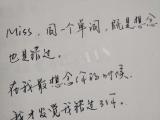 Miss，同一个单词，既是想念
也是错过。
在我最想念你的时候，
我才发觉我错过了你。